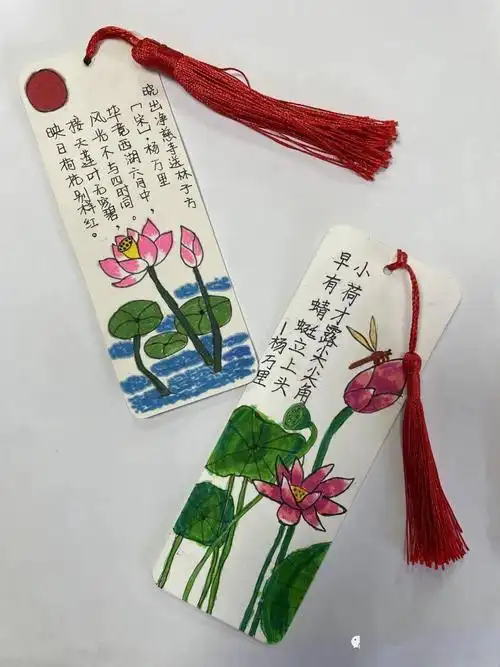 晓出净慈寺送林子方
「宋」,杨万里
毕竟西湖六月中,
风光不与四时同。
接天莲叶无穷碧,
映日荷花别样红。
小荷才露尖尖角
早有蜻蜓立上头
—杨万里